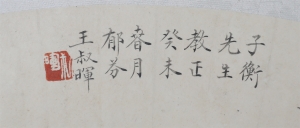 子衡
先生
教正
癸未
春月
郁芬
王叔暉